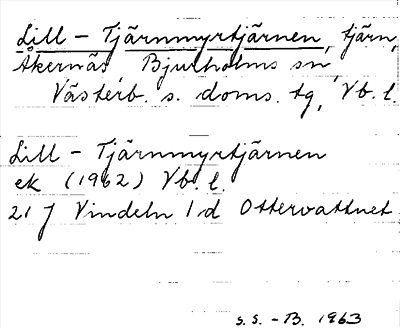 Lill - Tjärnmyrtjärnen, tjärn,
Åkernäs Bjurholms sn
Västerb. s. doms. tg, Vb. l.
Lill - Tjärnmyrtjärnen
ek (1962) Vb. l.
21 J Vindeln 1 d Ottervattnet
S.S. - B. 1963